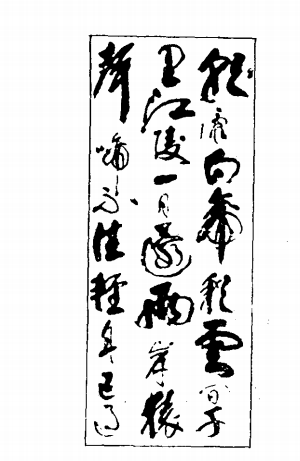 朝辭白帝彩雲間千
里江陵一日還兩岸猿
聲啼不住輕舟已過